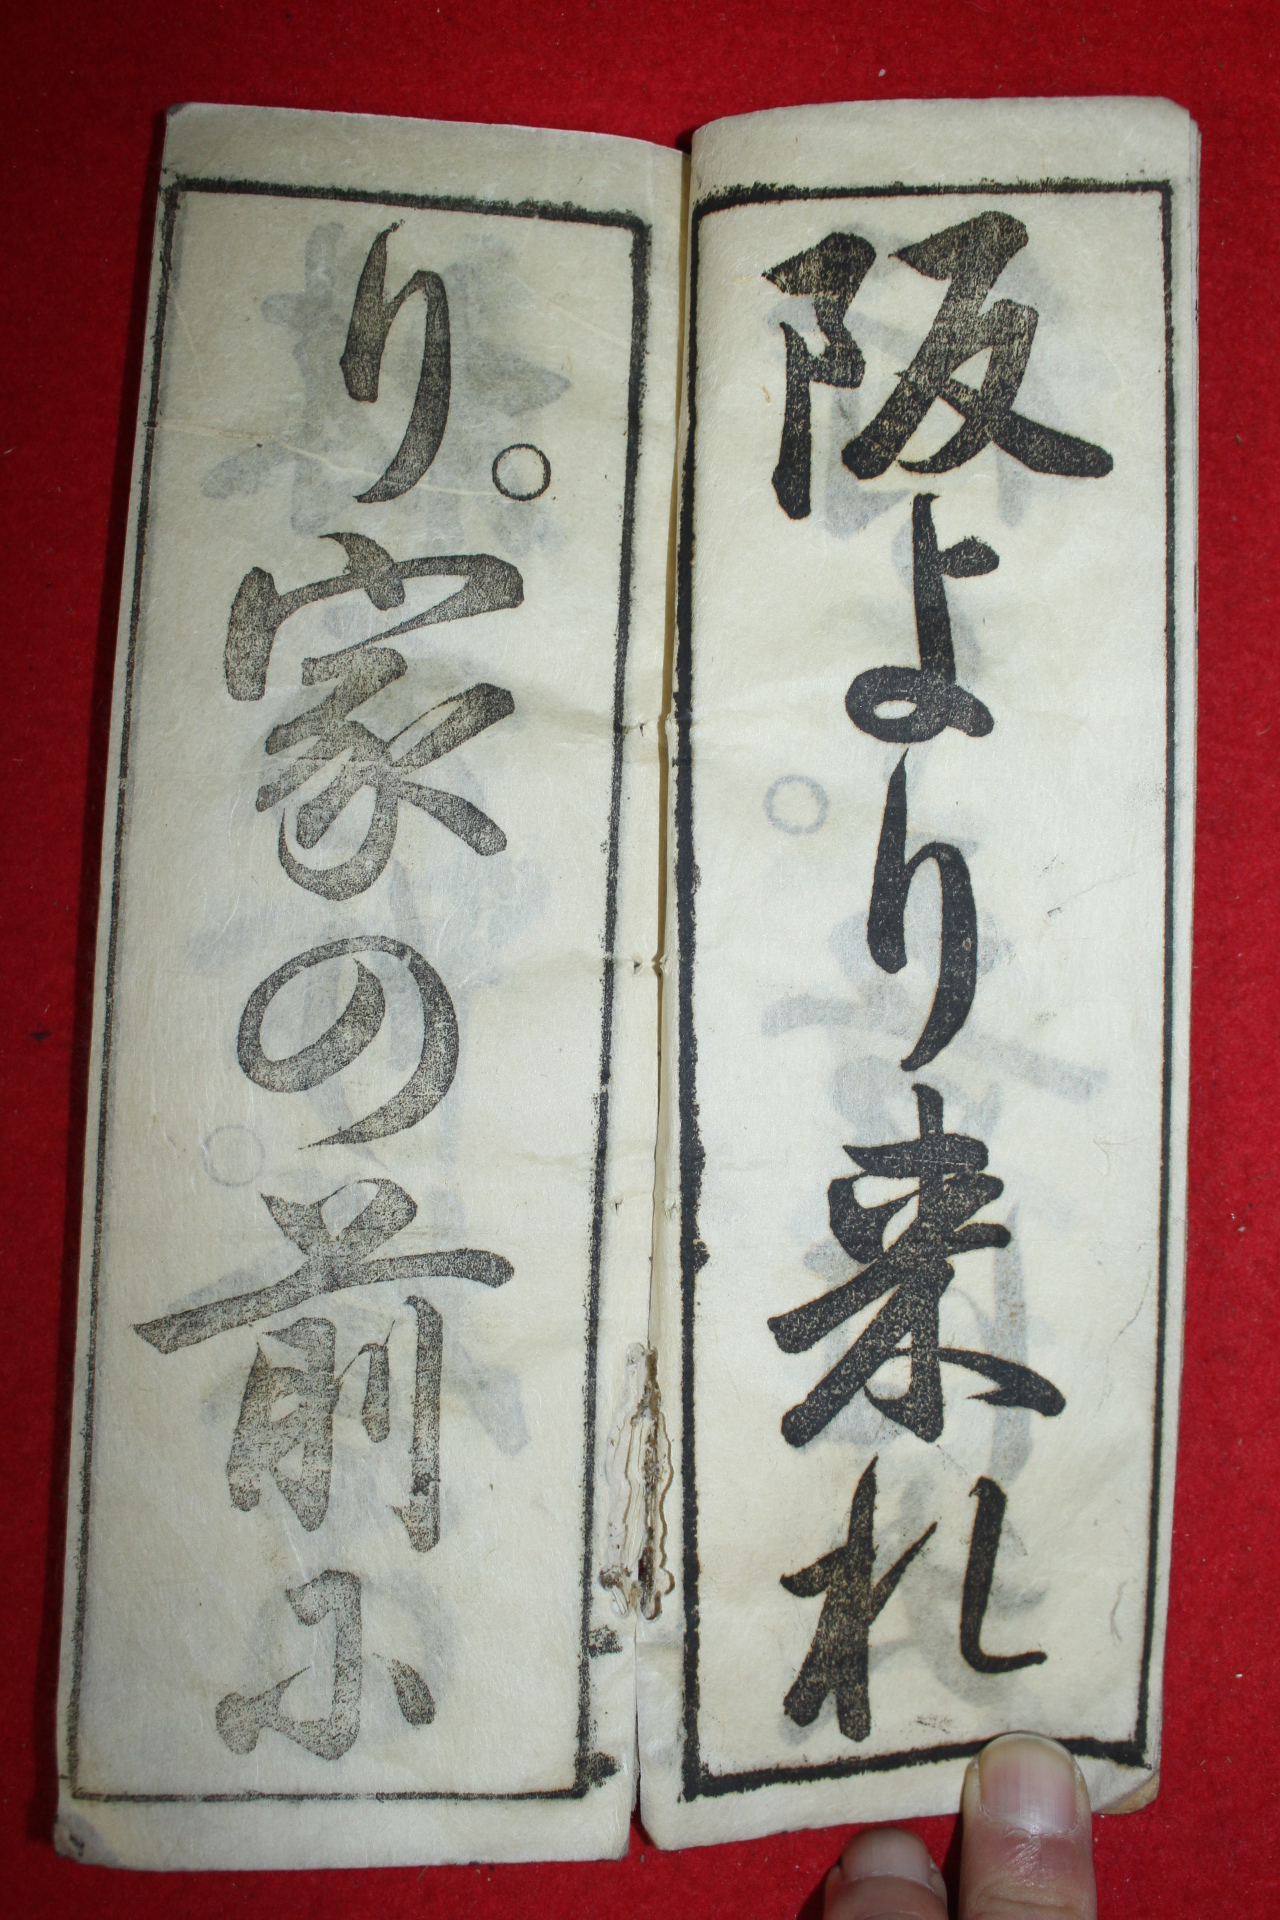 阪より来れ
り。家の前に